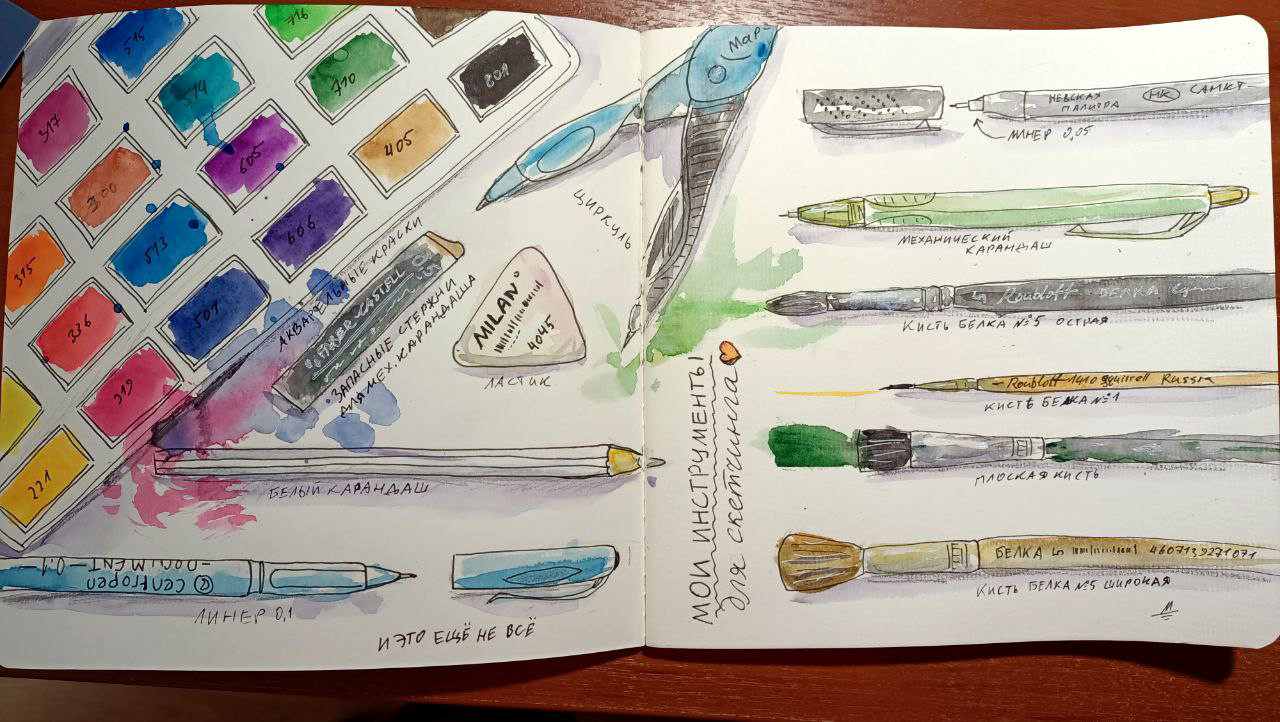 515
716
317
514
710
801
300
605
405
315
513
606
336
501
319
221
АКВАРЕЛЬНЫЕ КРАСКИ
FABER-CASTELL
ЗАПАСНЫЕ СТЕРЖНИ
ДЛЯ МЕХ. КАРАНДАША
MILAN
4045
ЛАСТИК
ЦИРКУЛЬ
Мар
БЕЛЫЙ КАРАНДАШ
© Centropen
-DOCUMENT- 0.1
ЛИНЕР 0,1
И ЭТО ЕЩЁ НЕ ВСЁ
МОИ ИНСТРУМЕНТЫ
для скетчинга
НЕВСКАЯ
ПАЛИТРА
НК
САНКТ-
ЛИНЕР 0,05
МЕХАНИЧЕСКИЙ
КАРАНДАШ
5 Roubloff БЕЛКА
КИСТЬ БЕЛКА №5 ОСТРАЯ
- Roubloff 1410 squirrell Russia
КИСТЬ БЕЛКА №1
ПЛОСКАЯ КИСТЬ
БЕЛКА 5
КИСТЬ БЕЛКА №5 ШИРОКАЯ
М